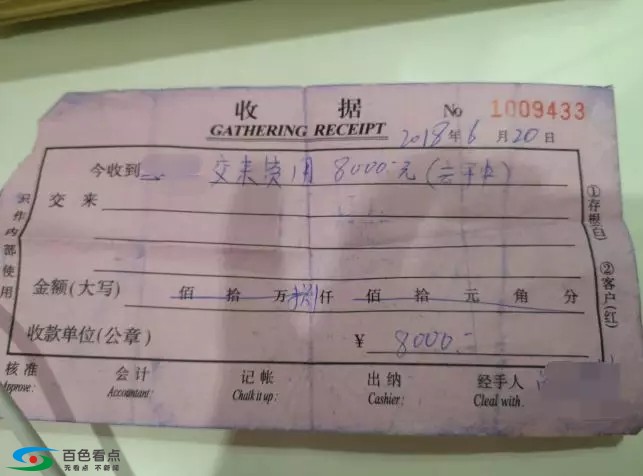 收 据
No 1009433
GATHERING RECEIPT
2018年6月20日
今收到 交来费用 8000元(云
交 来
只作内部使用
①存根(白)
②客户(红)
金额(大写) 佰 拾 万捌仟 佰 拾 元 角 分
收款单位(公章) ¥ 8000.-
核准 会计 记帐 出纳 经手人
Approve: Accountant: Chalk it up: Cashier: Cleal with:
百色看点
无看点 不新闻